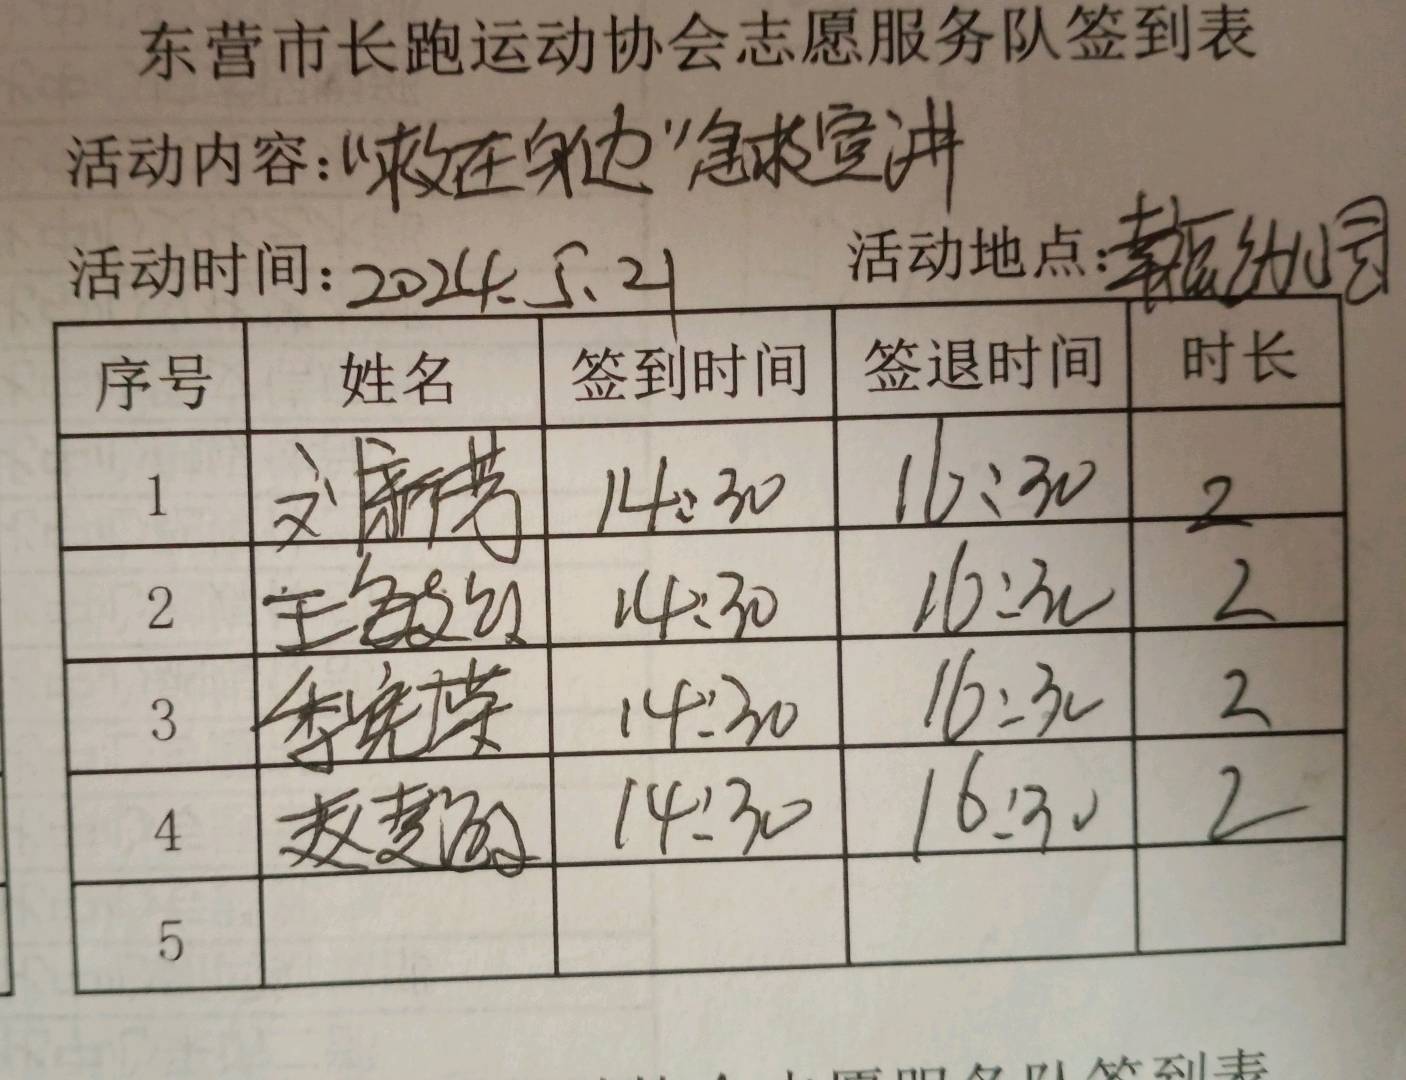 东营市长跑运动协会志愿服务队签到表
活动内容:“救在身边”急救宣讲
活动时间:2024.5.21 活动地点:幼儿园
序号 姓名 签到时间 签退时间 时长
1 刘新芳 14:30 16:30 2
2 王 14:30 16:30 2
3 李宪荣 14:30 16:30 2
4 赵 14:30 16:30 2
5
志愿服务队签到表